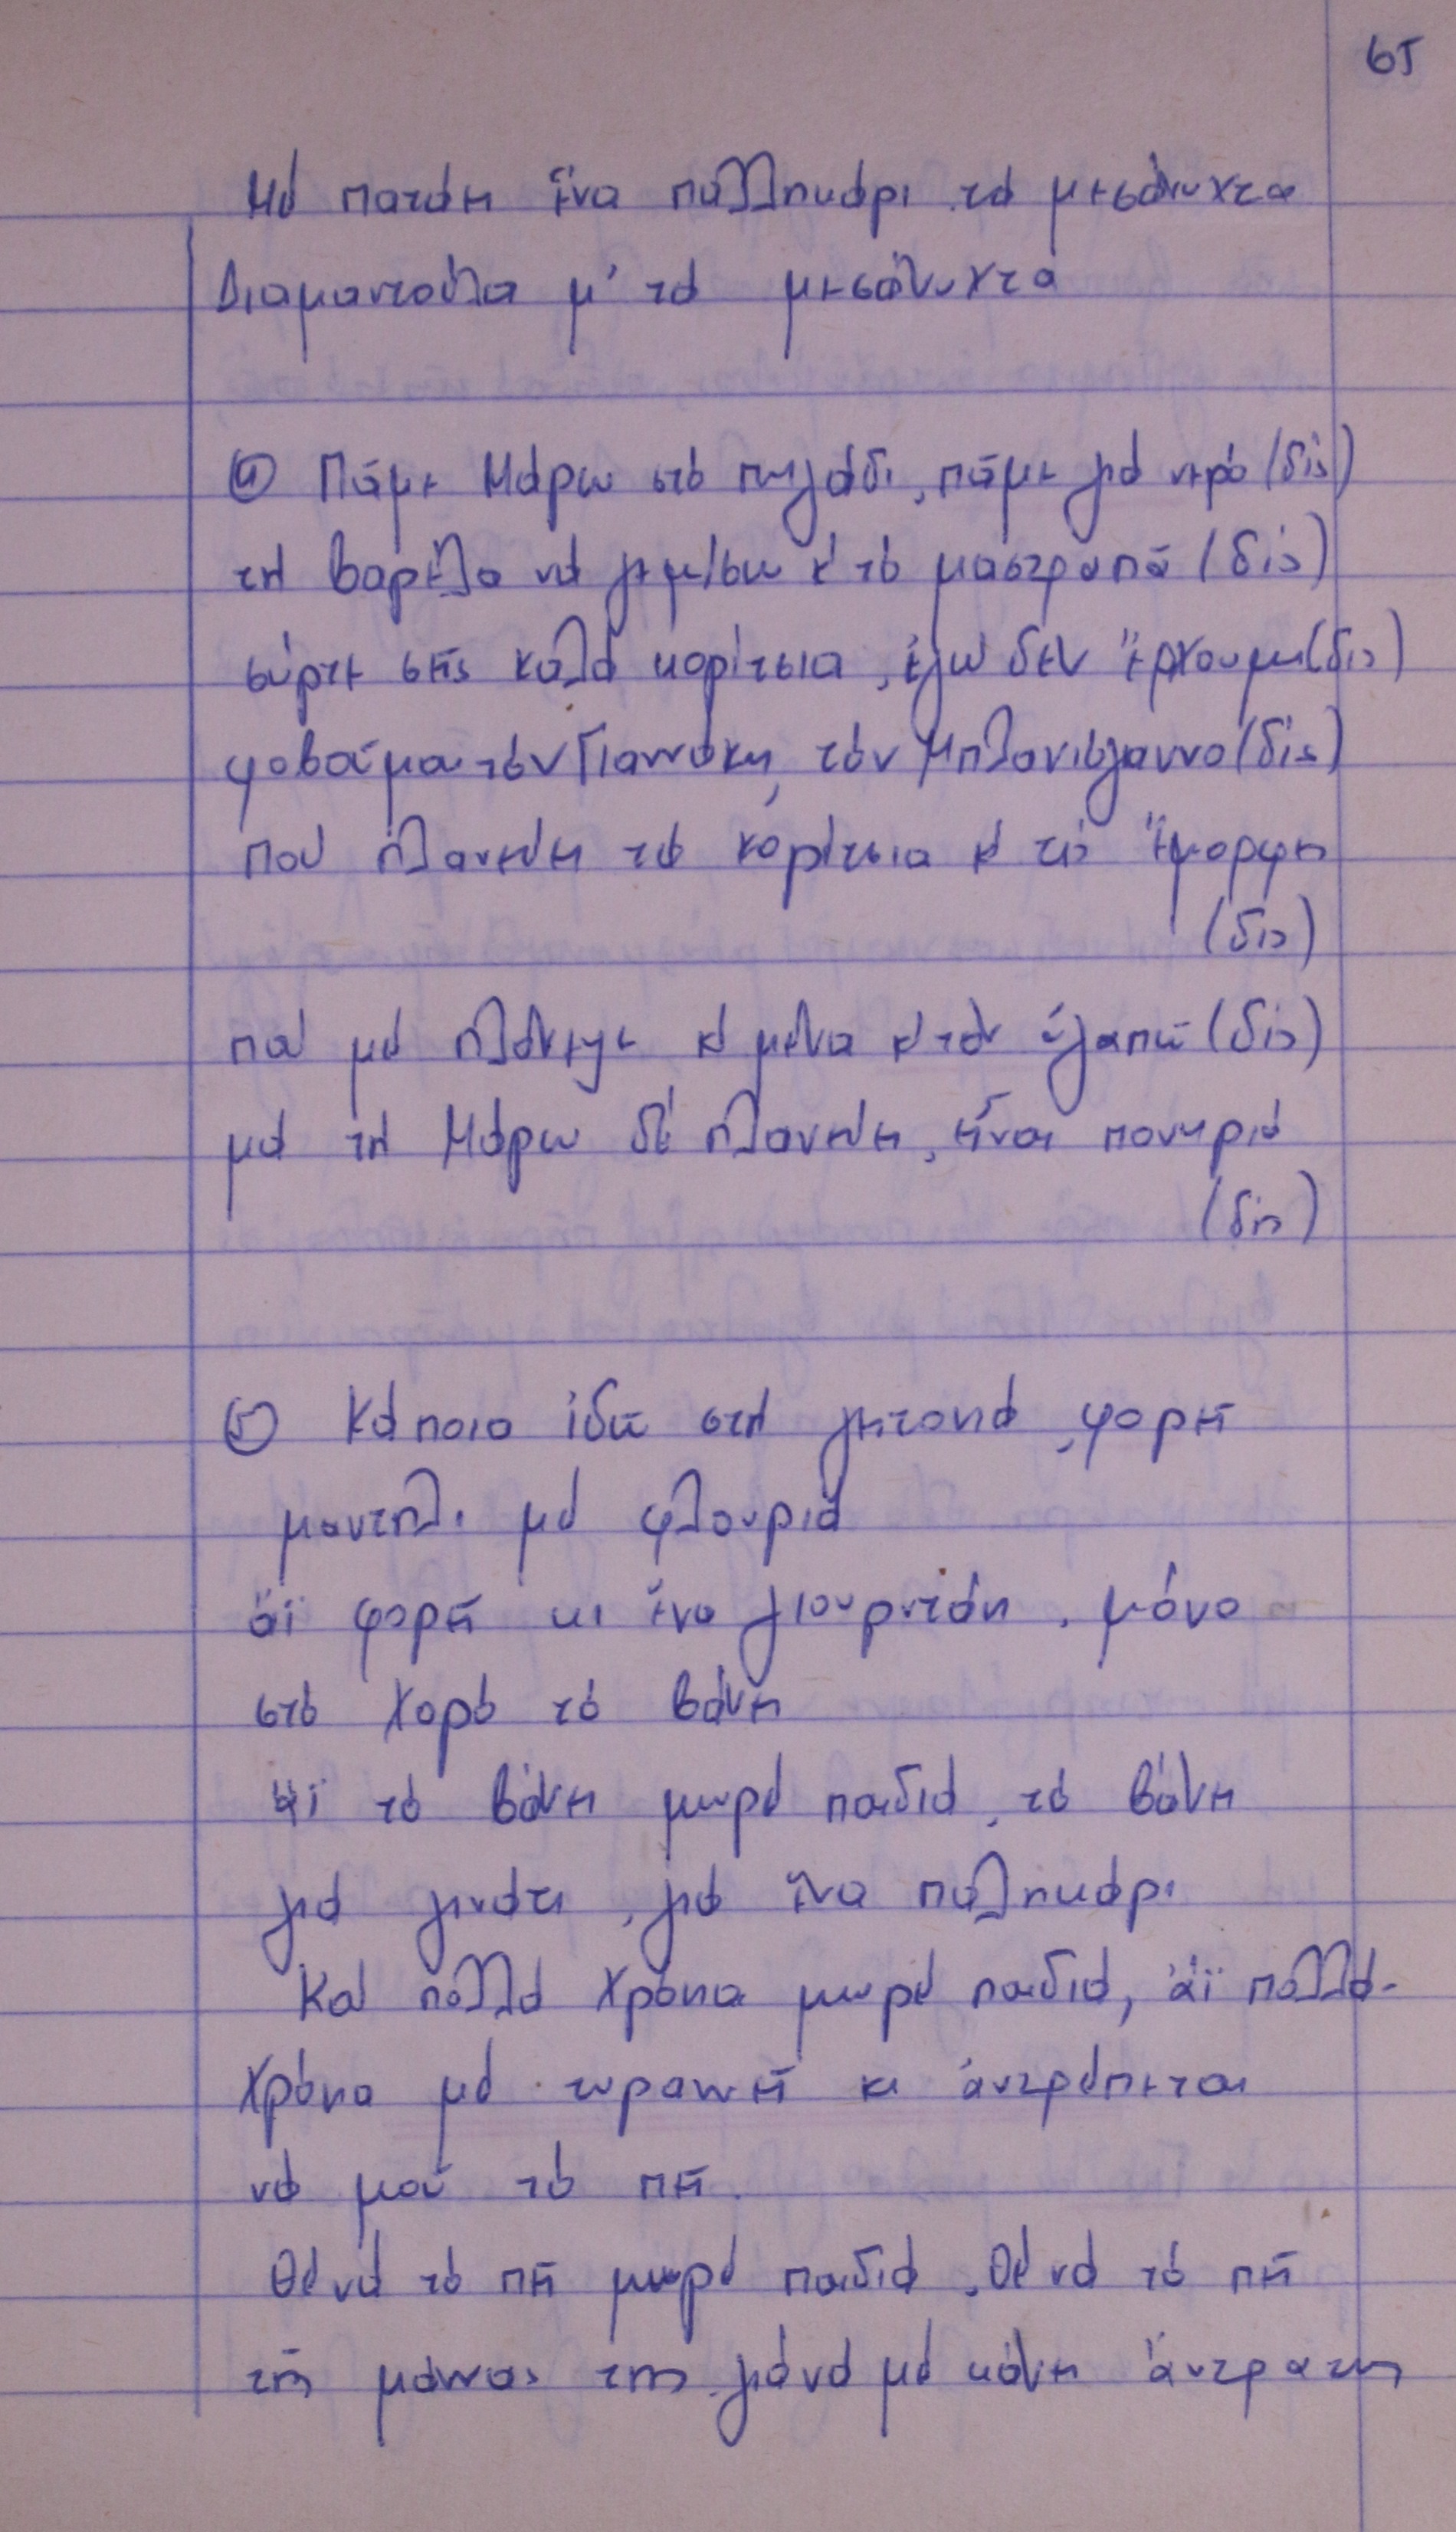 65
Μέ πατάει ἕνα παλληκάρι τά μεσάνυχτα
Διαμαντούλα μ' τά μεσάνυχτα
④ Πᾶμε Μάρω στό πηγάδι, πᾶμε γιά νερό (δίς)
τή βαρέλα νά γεμίσω κ' τό μαστραπᾶ (δίς)
σύρτε σεῖς καλά κορίτσια, ἐγώ δέν ἔρχουμαι (δίς)
φοβᾶμαι τόν Γιαννάκη, τόν Μπλανιόγιαννο (δίς)
πού πλανεύει τά κορίτσια κ' τίς ἔμορφες
(δίς)
πού μέ πλάνεψε κ' μένα κ' τόν ἀγαπῶ (δίς)
μά τή Μάρω δέ πλανεύει, εἶναι πονηριά
(δίς)
⑤ Κάποια ἐδῶ στή γειτονιά, φορεῖ
μαντήλι μέ φλουριά
ἄϊ φορεῖ κι ἕνα γιουρντάνι, μόνο
στό χορό τό βάνει
ἄϊ τό βάνει μωρέ παιδιά, τό βάνει
γιά γινάτι, γιά ἕνα παλληκάρι
Καί πολλά χρόνια μωρέ παιδιά, ἄϊ πολλά
χρόνια μέ τυραννεῖ κι ἀντρέπεται
νά μοῦ τό πεῖ.
Θέ νά τό πεῖ μωρέ παιδιά, θέ νά τό πεῖ
τῆς μάνας της, γιά νά μέ κάνει ἄντρα της